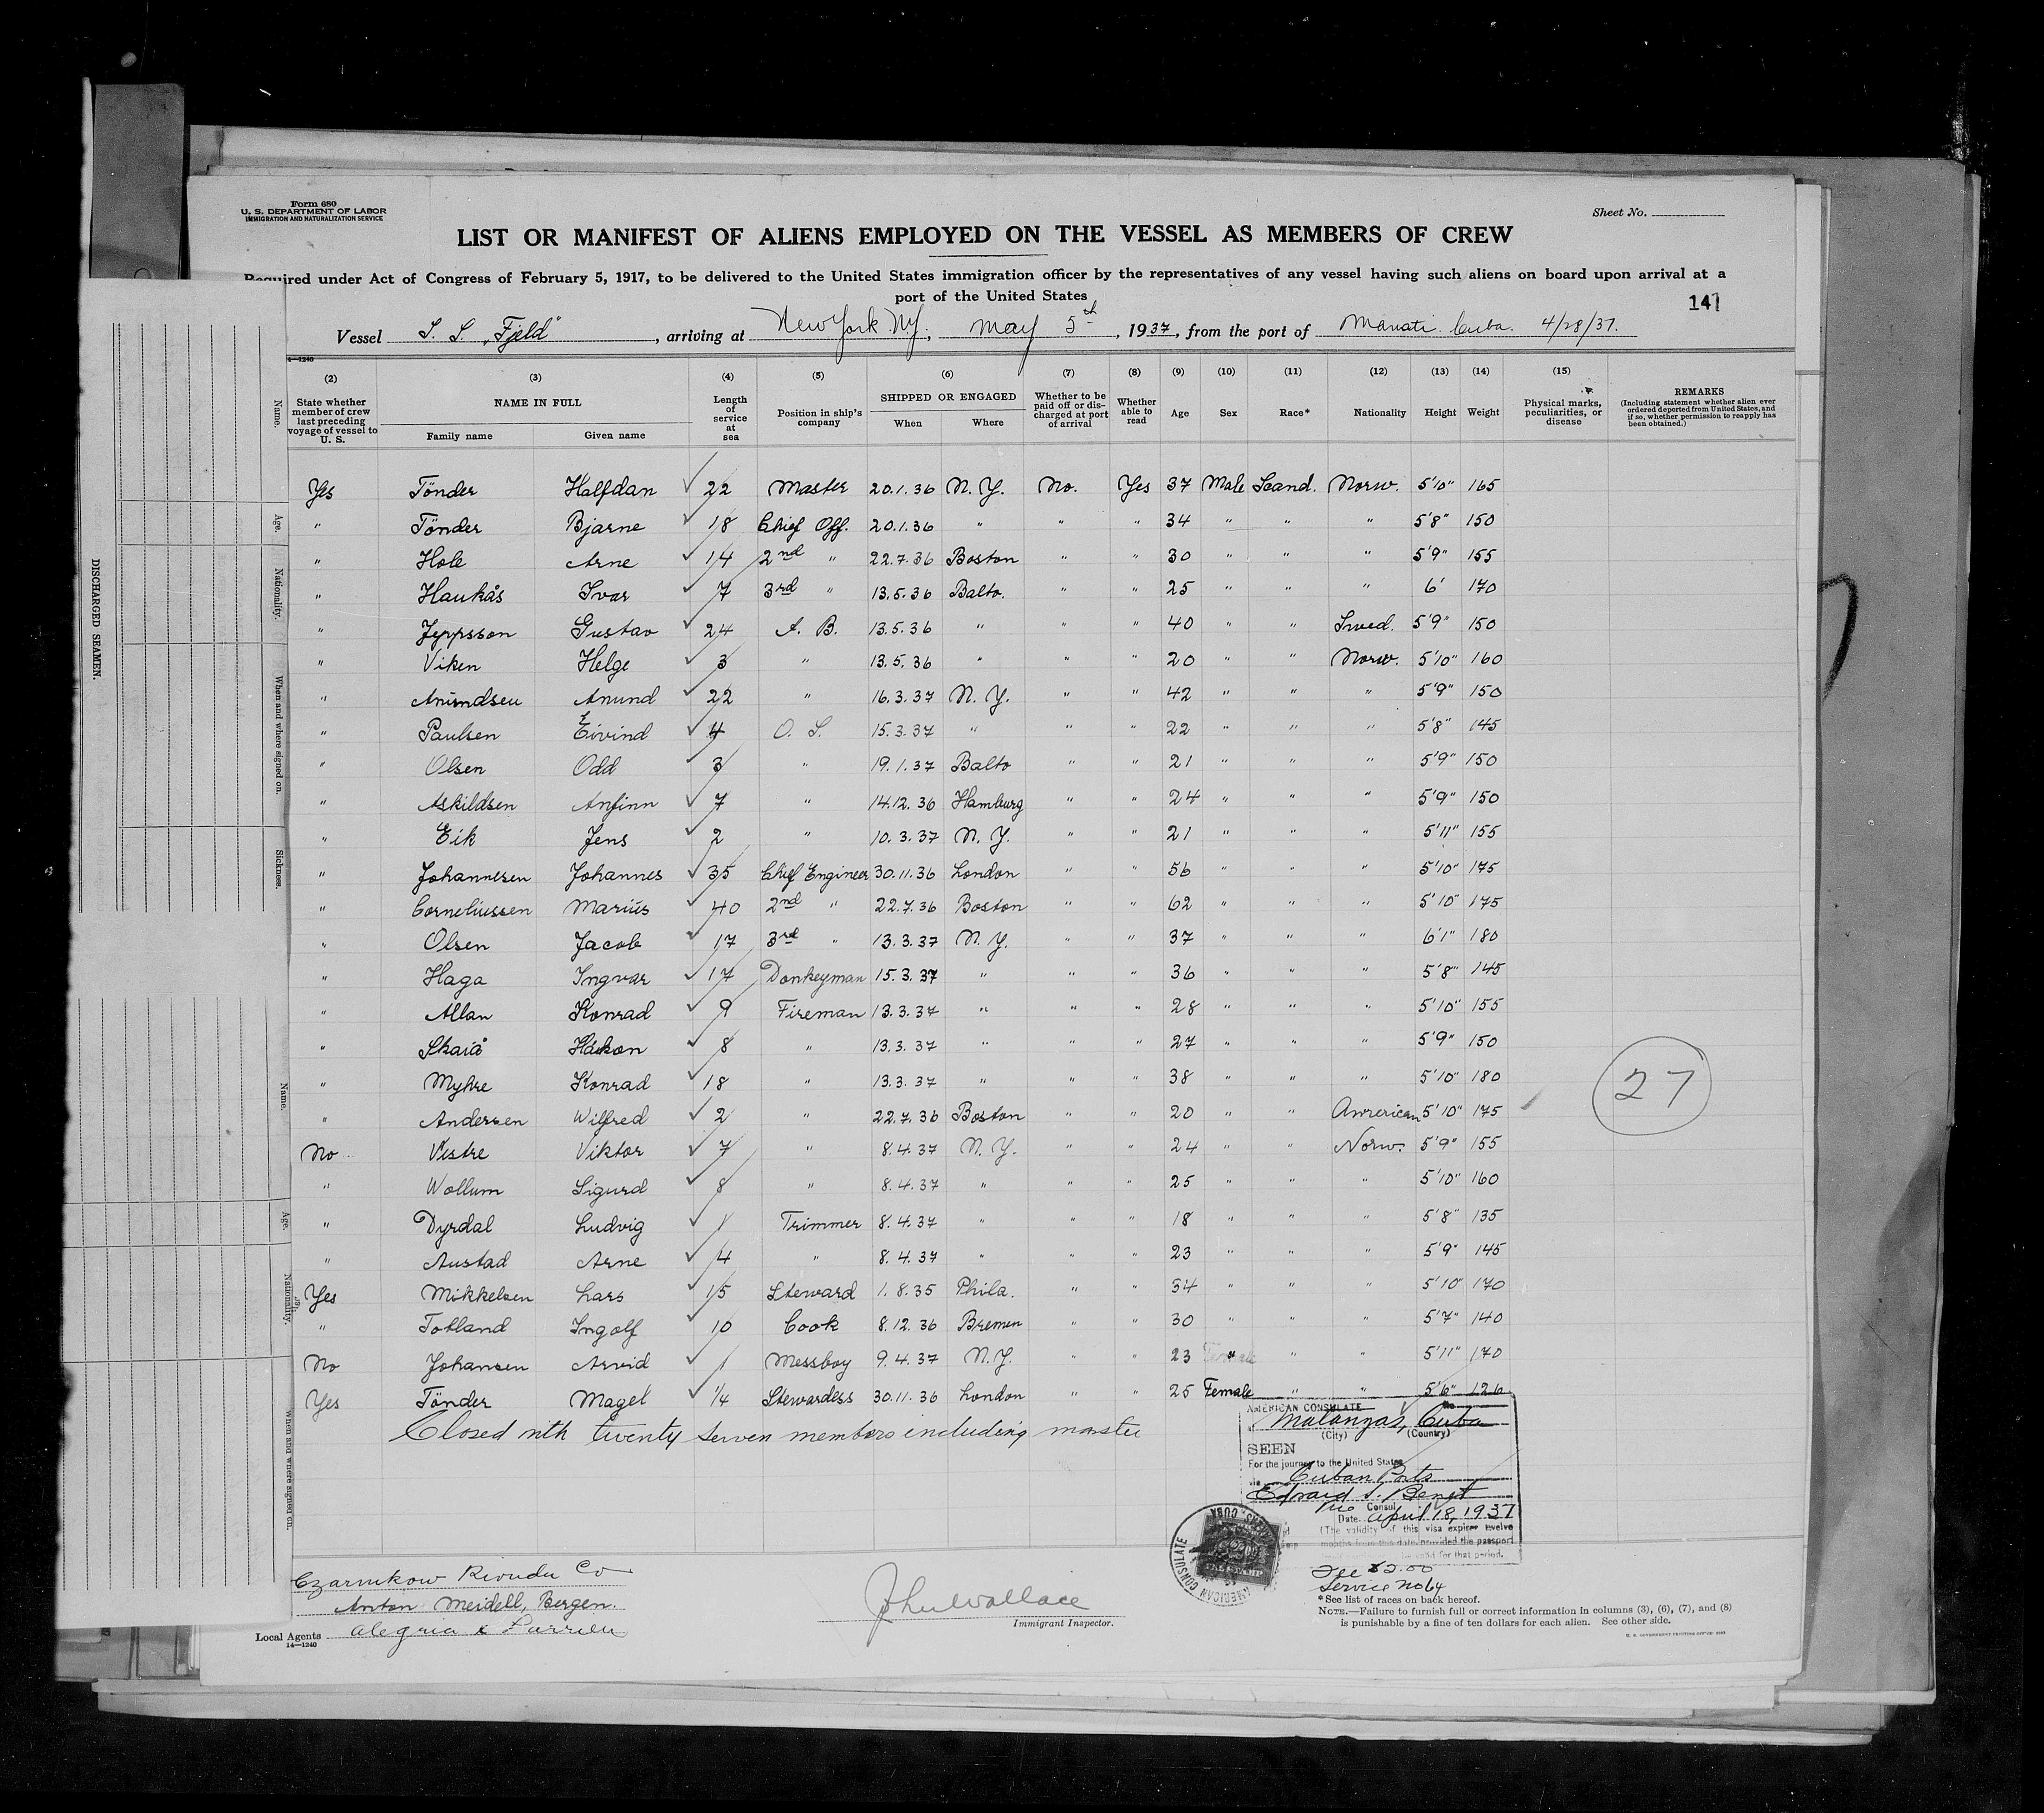 Form 680
U. S. DEPARTMENT OF LABOR
IMMIGRATION AND NATURALIZATION SERVICE
Sheet No.
LIST OR MANIFEST OF ALIENS EMPLOYED ON THE VESSEL AS MEMBERS OF CREW
Required under Act of Congress of February 5, 1917, to be delivered to the United States immigration officer by the representatives of any vessel having such aliens on board upon arrival at a
port of the United States
141
Vessel S. S. "Fjeld", arriving at New York N.Y., May 5th, 1937, from the port of Manati Cuba. 4/28/37.
14—1240
(2) (3) (4) (5) (6) (7) (8) (9) (10) (11) (12) (13) (14) (15)
State whether member of crew last preceding voyage of vessel to U. S. NAME IN FULL Family name Given name Length of service at sea Position in ship's company SHIPPED OR ENGAGED When Where Whether to be paid off or discharged at port of arrival Whether able to read Age Sex Race* Nationality Height Weight Physical marks, peculiarities, or disease REMARKS (Including statement whether alien ever ordered deported from United States, and if so, whether permission to reapply has been obtained.)
Yes Tönder Halfdan 22 Master 20.1.36 N.Y. No. Yes 37 Male Scand. Norw. 5'10" 165
" Tönder Bjarne 18 Chief Off. 20.1.36 " " " 34 " " " 5'8" 150
" Hole Arne 14 2nd " 22.7.36 Boston " " 30 " " " 5'9" 155
" Haukås Ivar 7 3rd " 13.5.36 Balto. " " 25 " " " 6' 170
" Jeppsson Gustav 24 A. B. 13.5.36 " " " 40 " " Swed. 5'9" 150
" Viken Helge 3 " 13.5.36 " " " 20 " " Norw. 5'10" 160
" Anundsen Anund 22 " 16.3.37 N.Y. " " 42 " " " 5'9" 150
" Paulsen Eivind 4 O. S. 15.3.37 " " " 22 " " " 5'8" 145
" Olsen Odd 3 " 19.1.37 Balto " " 21 " " " 5'9" 150
" Askildsen Anfinn 7 " 14.12.36 Hamburg " " 24 " " " 5'9" 150
" Eik Jens 2 " 10.3.37 N.Y. " " 21 " " " 5'11" 155
" Johannesen Johannes 35 Chief Engineer 30.11.36 London " " 56 " " " 5'10" 175
" Corneliussen Marius 40 2nd " 22.7.36 Boston " " 62 " " " 5'10" 175
" Olsen Jacob 17 3rd " 13.3.37 N.Y. " " 37 " " " 6'1" 180
" Haga Ingvar 17 Donkeyman 15.3.37 " " " 36 " " " 5'8" 145
" Allan Konrad 9 Fireman 13.3.37 " " " 28 " " " 5'10" 155
" Skaiå Håkon 8 " 13.3.37 " " " 27 " " " 5'9" 150
" Myhre Konrad 18 " 13.3.37 " " " 38 " " " 5'10" 180
" Andersen Wilfred 2 " 22.7.36 Boston " " 20 " " American 5'10" 175
27
No Vestre Viktor 7 " 8.4.37 N.Y. " " 24 " " Norw. 5'9" 155
" Wollum Sigurd 8 " 8.4.37 " " " 25 " " " 5'10" 160
" Dyrdal Ludvig 1 Trimmer 8.4.37 " " " 18 " " " 5'8" 135
" Austad Arne 4 " 8.4.37 " " " 23 " " " 5'9" 145
Yes Mikkelsen Lars 15 Steward 1.8.35 Phila. " " 34 " " " 5'10" 170
" Totland Ingolf 10 Cook 8.12.36 Bremen " " 30 " " " 5'7" 140
No Johansen Arvid 1 Messboy 9.4.37 N.Y. " " 23 " " " 5'11" 170
Yes Tönder Magel 1/4 Stewardess 30.11.36 London " " 25 Female " " 5'6" 126
Closed with twenty seven members including master
AMERICAN CONSULATE
Matanzas, Cuba
(City) (Country)
SEEN
For the journey to the United States
via Cuban Ports
Consul
Date April 18, 1937
(The validity of this visa expires twelve
months from this date, provided the passport
valid for that period.
AMERICAN CONSULATE
CUBA
Fee $2.00
Service No 64
Czarnikow Rionda Co
Anton Meidell, Bergen.
Local Agents
14—1240
John Wallace
Immigrant Inspector.
*See list of races on back hereof.
NOTE.—Failure to furnish full or correct information in columns (3), (6), (7), and (8)
is punishable by a fine of ten dollars for each alien. See other side.
DISCHARGED SEAMEN.
Name.
Age.
Nationality.
When and where signed on.
Sickness.
Name.
Age.
Nationality.
When and where signed on.